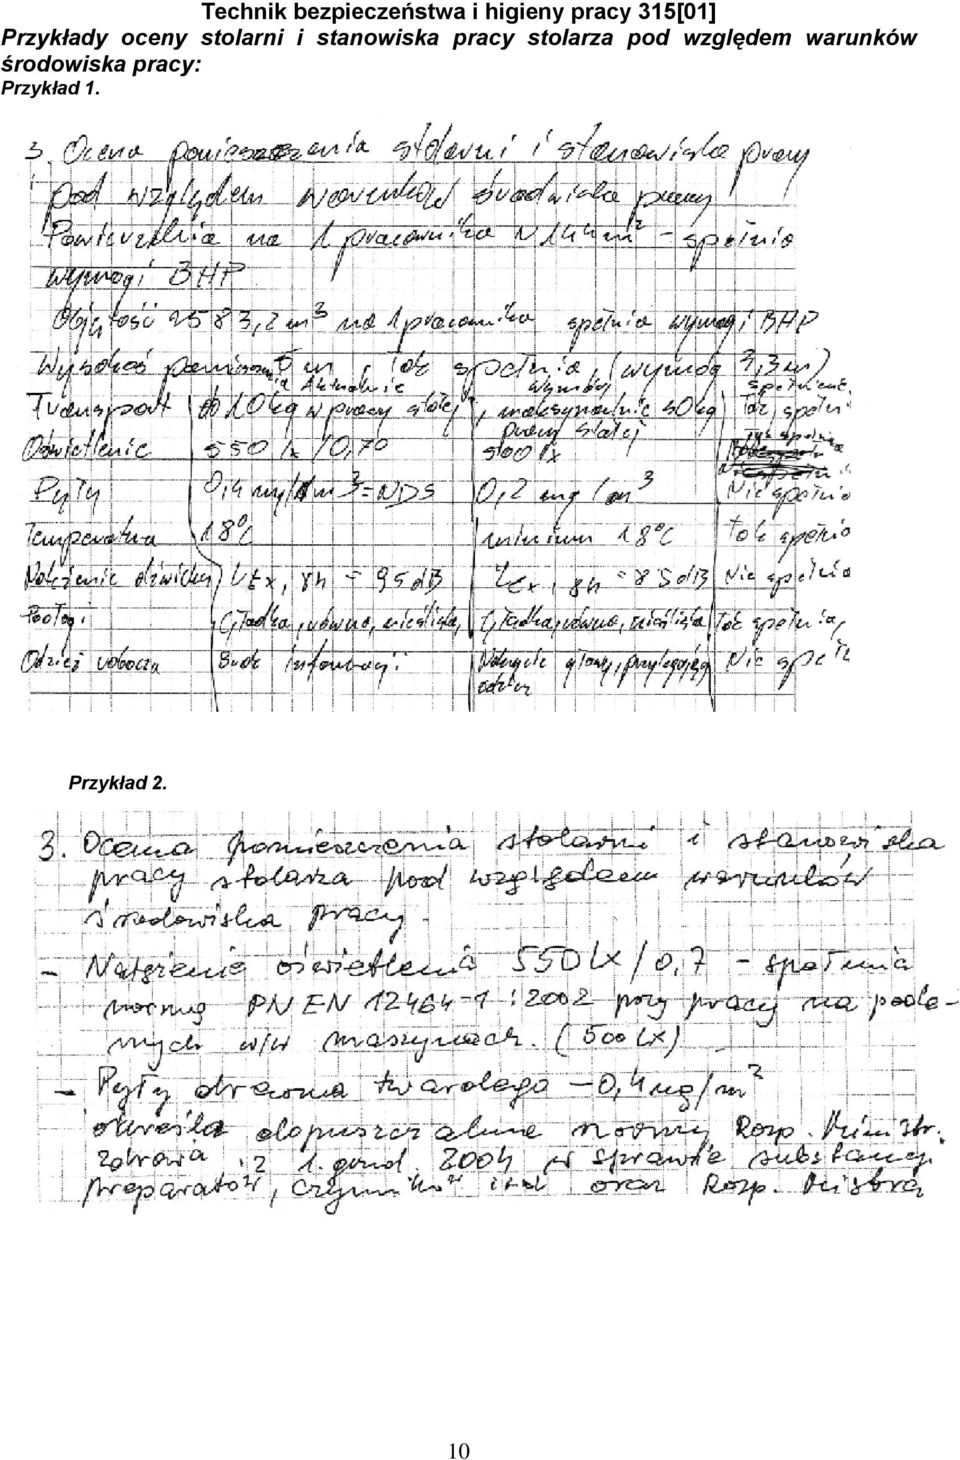 Technik bezpieczeństwa i higieny pracy 315[01]
Przykłady oceny stolarni i stanowiska pracy stolarza pod względem warunków
środowiska pracy:
Przykład 1.
3. Ocena pomieszczenia stolarni i stanowiska pracy
pod względem warunków środwiska pracy
Powierzchnia na 1 pracownika 144m² - spełnia
wymogi BHP
Objętość 583,2 m³ na 1 pracownika spełnia wymogi BHP
Wysokość 5 m, Tak spełnia, (wymóg 3,3 m)
Aktualnie wymóg spełnienie
Transport do 10 kg w pracy stałej, maksymalnie 50 kg Tak, spełni
pracy stałej
Oświetlenie 550 lx /0,70 500 lx Tak spełnia
Pyły 0,4 mg/m³ = NDS 0,2 mg/m³ Nie spełnia
Temperatura 18°C minimum 18°C Tak spełnia
Natężenie dźwięku LEx, 8h = 95 dB LEx, 8h = 85 dB Nie spełnia
Podłogi Gładka, równa, nieśliska, Gładka, równa, nieśliska, Tak spełnia,
Odzież robocza Brak informacji Nakrycie głowy, przylegająca Nie speł
odzież
Przykład 2.
3. Ocena pomieszczenia stolarni i stanowiska
pracy stolarza pod względem warunków
środowiska pracy.
- Natężenie oświetlenia 550 lx/0,7 - spełnia
normę PN EN 12464-1:2002 przy pracy na podle-
nych w/w maszynach. (500 lx)
- Pyły drewna twardego - 0,4 mg/m³
określa dopuszczalne normy Rozp. Ministr.
zdrowia z 1. grud. 2004 w sprawie substancji
preparatów, czynników itd oraz Rozp. Ministra
10